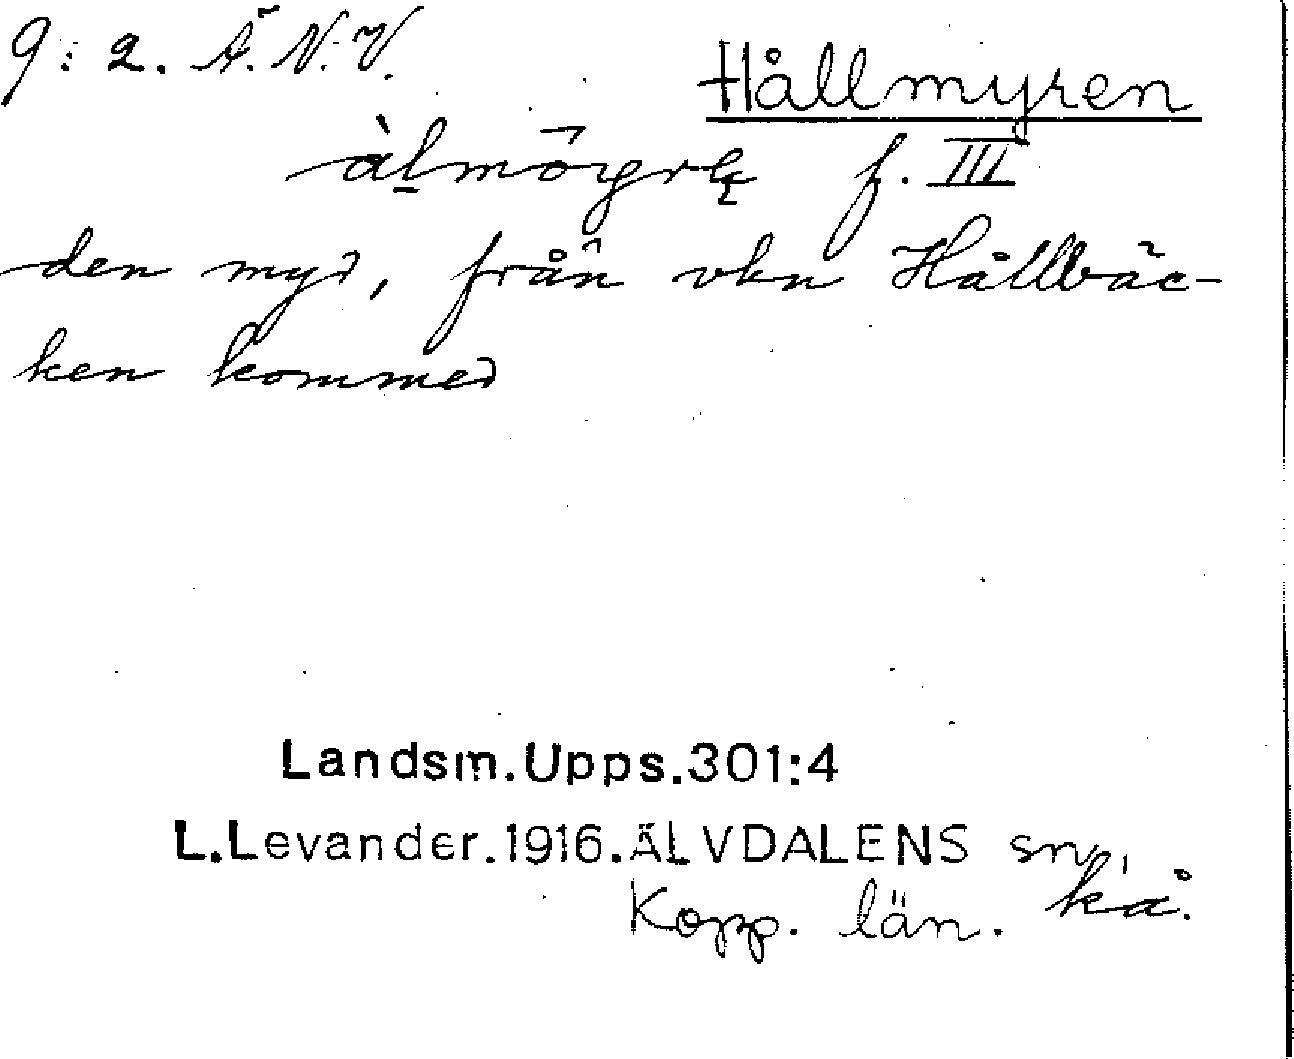 9:2. Ä.N.V.
Hållmyren
àlmȫyrę f. III
den myr, från vkn Hållbäc-
ken kommer
Landsm.Upps.301:4
L.Levander.1916.ÄLVDALENS sn,
Kopp. län. kå.